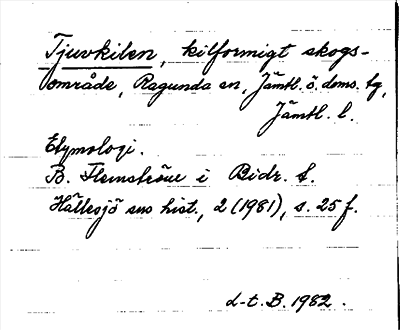 Tjuvkilen, kilformigt skogs-
område, Ragunda sn, Jämtl. ö. doms. tg,
Jämtl. l.
Etymologi.
B. Flemström i Bidr. t.
Hällesjö sns hist., 2 (1981), s. 25 f.
d-t. B. 1982.